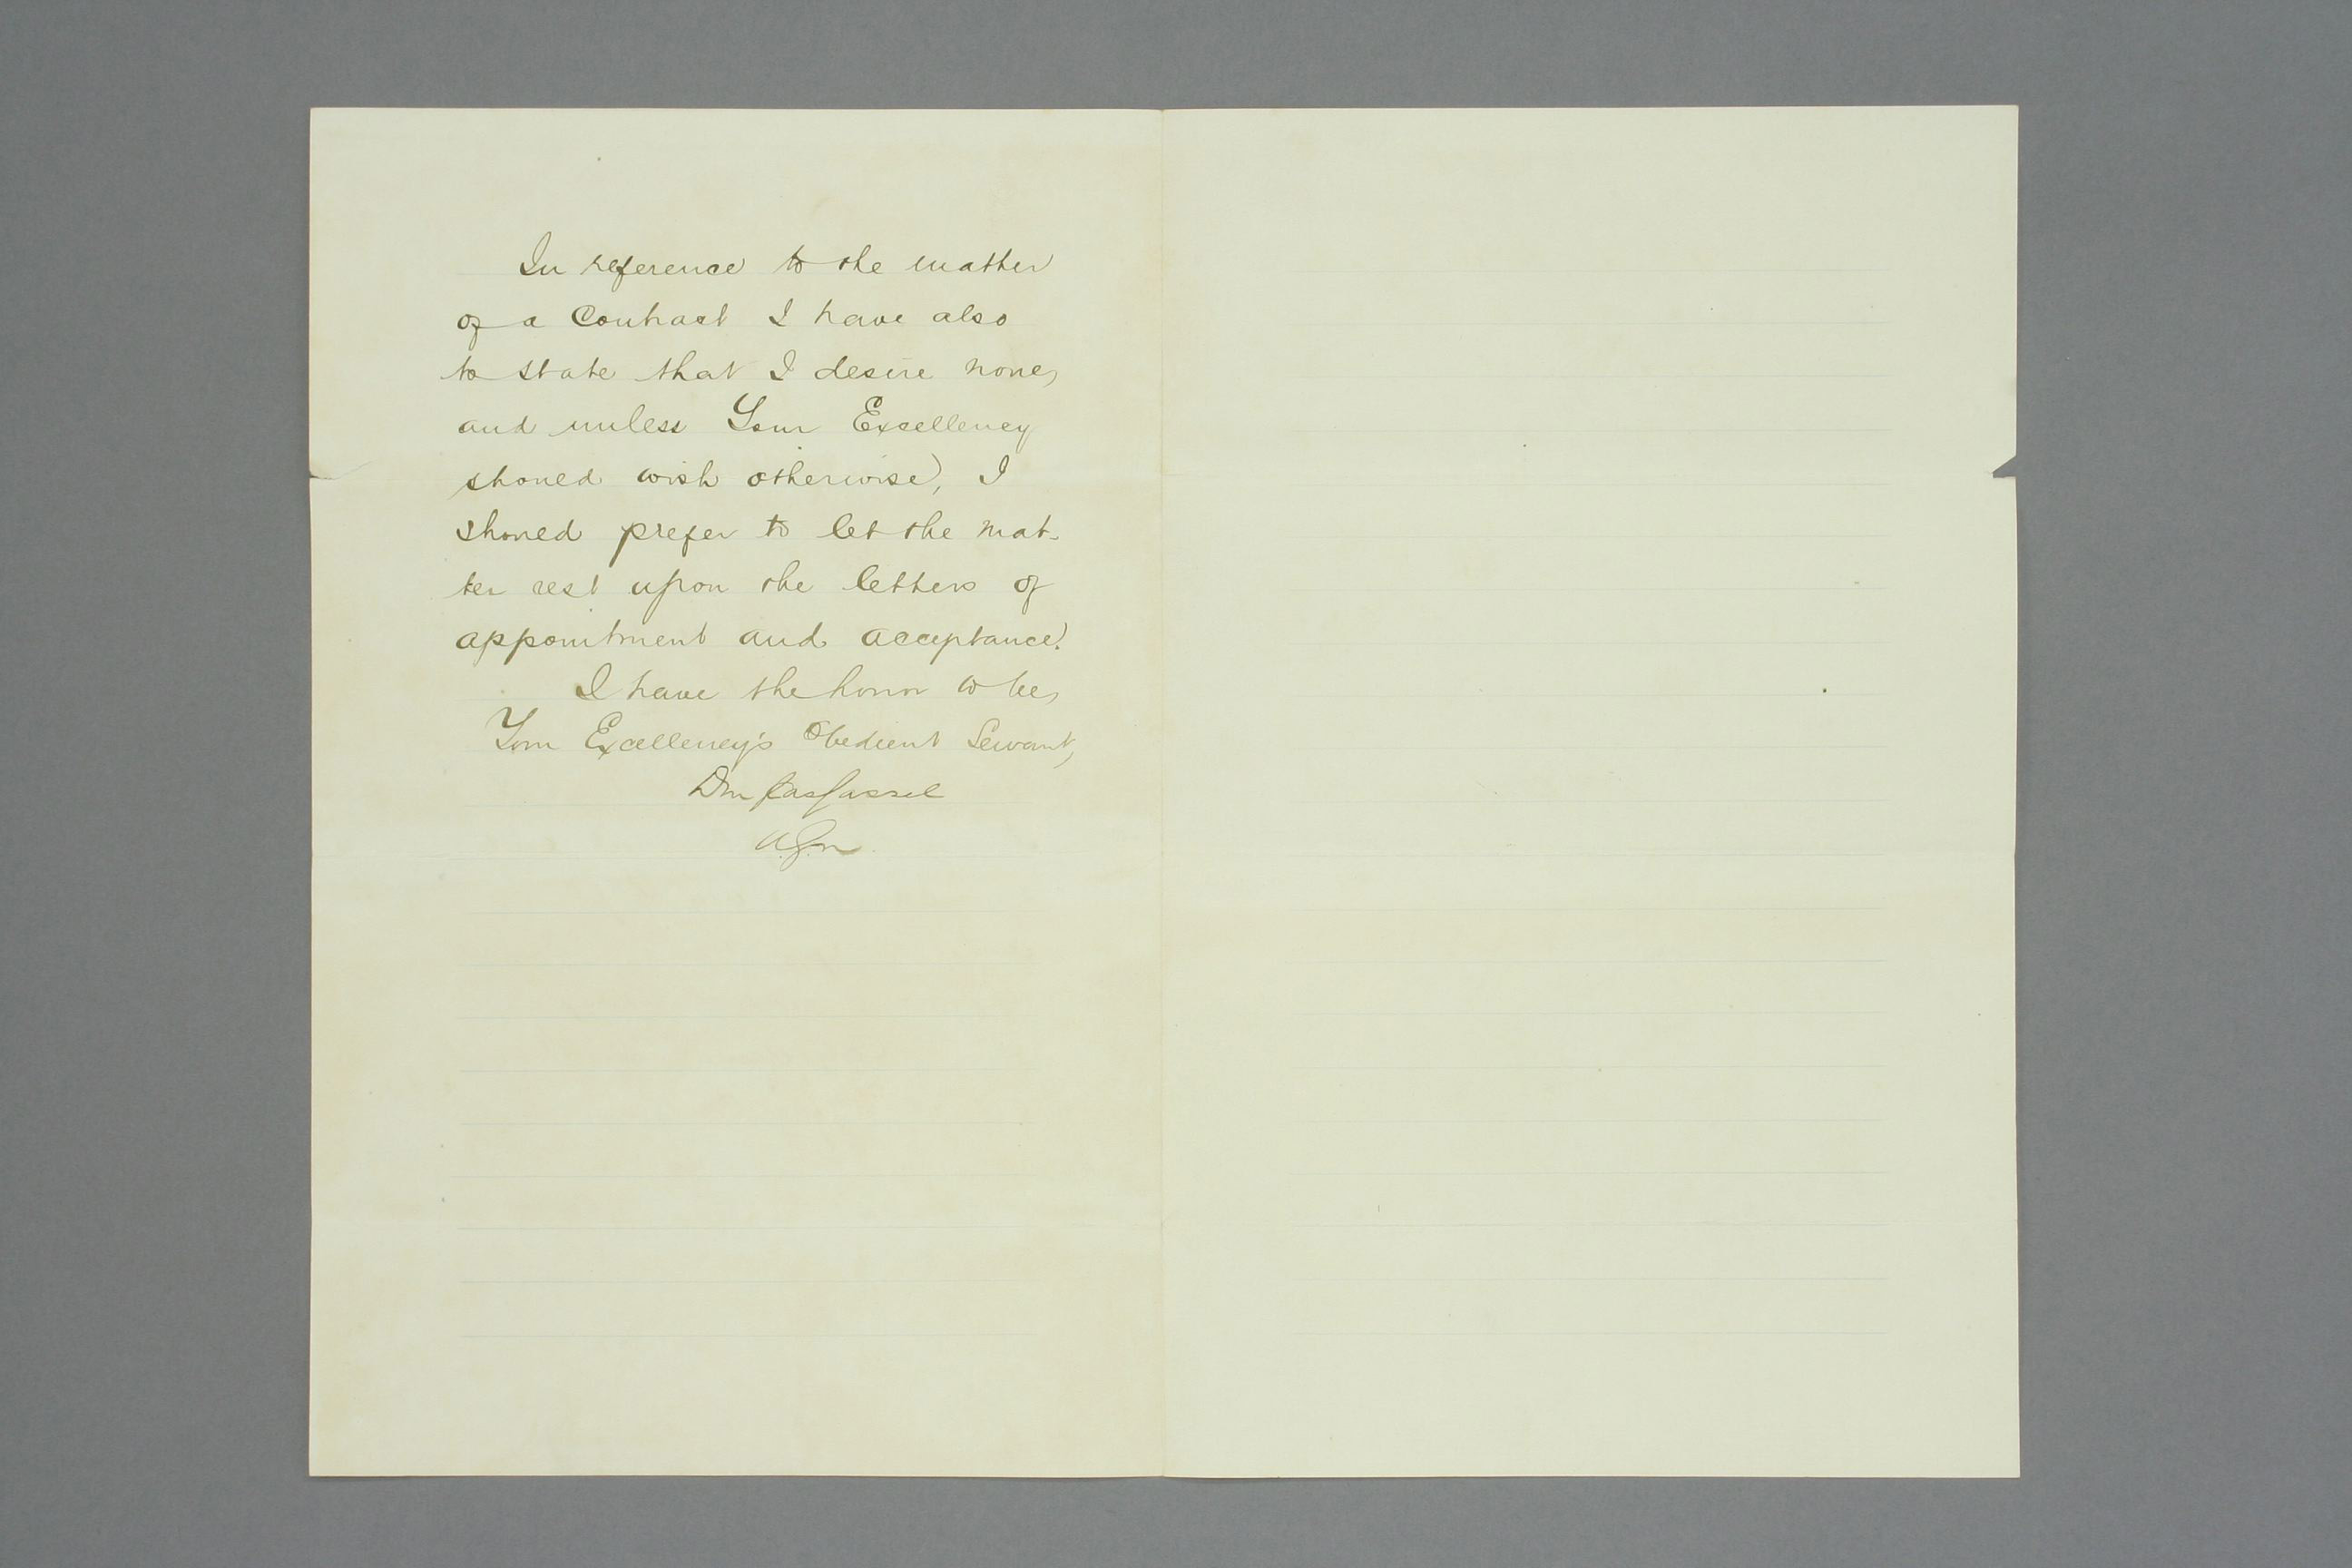 In reference to the matter
of a Contract I have also
to state that I desire none,
and unless Your Excellency
should wish otherwise, I
should prefer to let the mat-
ter rest upon the letters of
appointment and acceptance.
I have the honor to be,
Your Excellency's Obedient Servant,